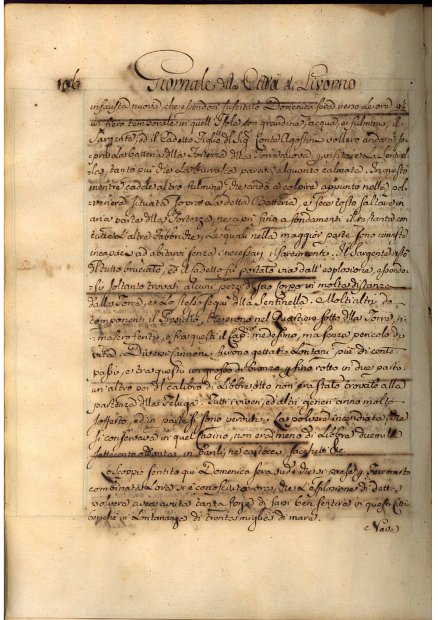 106 Giornale della Città di Livorno
infausta nuova, che essendosi suscitato Domenica sera verso le ore
un fiero temporale in quell'Isola con grandine, acqua, e fulmini, il
Sargente, ed il Cadetto Figlio del Sig. Conte Agostini vollero andare so-
pra la batteria della Fortezza della Torre a visitare la Sentinel-
la, tanto più che la burrasca pareva alquanto calmata. In questo
mentre cadde altro fulmine, che andò a colpire appunto nella pol-
veriera situata sopra la detta Batteria, e fece tosto saltare in
aria parte della Fortezza, ne aprì fino a fondamenti il restante con
tutte le altre Fabbriche, le quali nella maggior parte sono rimaste
incapaci ad abitarvi senza i necessari risarcimenti. Il Sargente restò
del tutto bruciato, ed il Cadetto fu portato via dall'esplosione, essendo-
si soltanto trovati alcuni pezzi del suo corpo in molta distanza
dalla Torre, e lo stesso seguì della Sentinella. Molti altri, de
componenti il Presidio, che erono nel Quartiere sotto della Torre, ri-
masero feriti, e fra questi il Cap. medesimo, ma senza pericolo di
vita. Diversi cannoni furono gettati lontani più di cento
passi, e tra questi un grosso di bronzo, si sino rotto in due parti,
un altro poi del calibro di libbre otto non era stato trovato alla
partenza della Feluca. Tutti i viveri, ed altri generi anno molto
sofferto, ed in parte si sono perduti. La polvere incendiata, che
si conservava in quel casino, non era meno di libbre duemila
settecento ottanta, in barili, ne cartocci, sacchetti &c.
Lo scoppio sentito qui Domenica sera su di che si prese
combinata l'ora si è conosciuto ora, che l'esplosione di detta
polvere aveva avuta tanta forza di farsi ben sentire in questa Città
benché in lontananza di trenta miglia di mare.
Nave